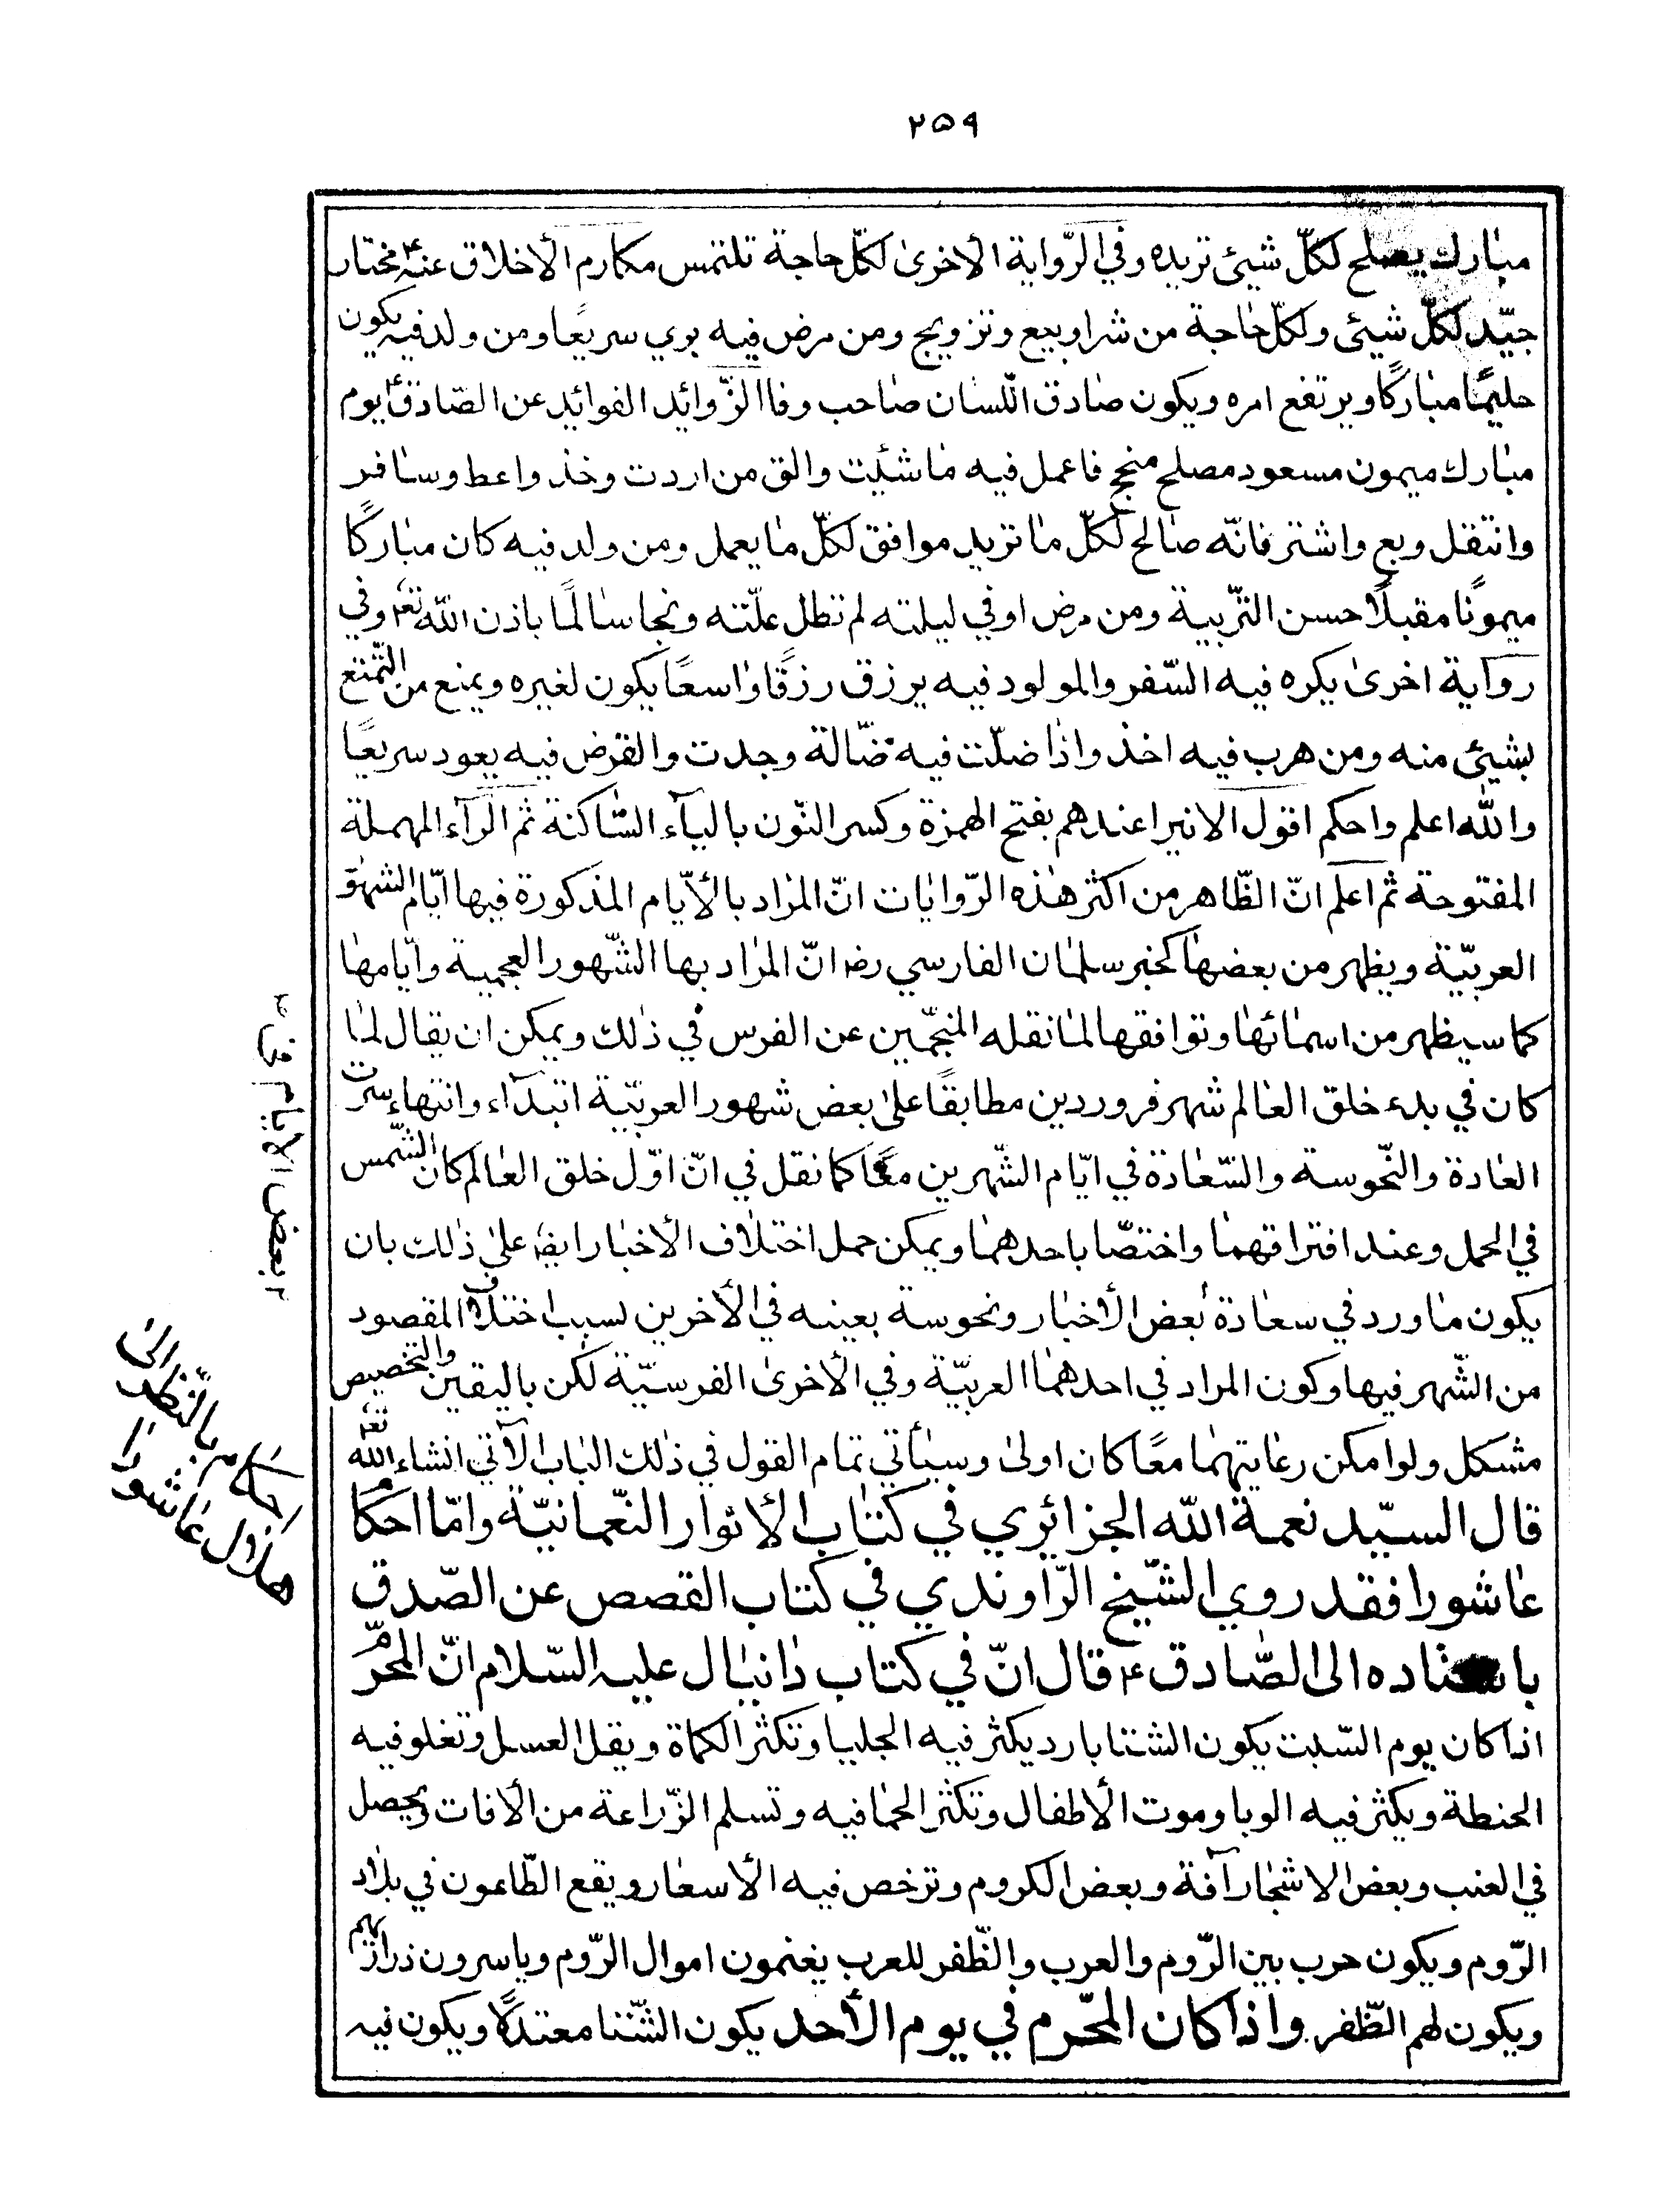 ۲۵۹
مبارك يصلح لكلّ شيئ تريده وفي الرّواية الأخرى لكلّ حاجة تلتمس مكارم الأخلاق عنه ع مختار
جيّد لكلّ شيئ ولكلّ حاجة من شرا وبيع وتزويج ومن مرض فيه بري سريعًا ومن ولد فيه يكون
حليمًا مباركًا ويرتفع امره ويكون صادق اللّسان صاحب وفا الزّوائد الفوائد عن الصّادق ع يوم
مبارك ميمون مسعود مصلح منجح فاعمل فيه ما شئت والق من اردت وخذ واعط وسافر
وانتقل وبع واشتر فانّه صالح لكلّ ما تريد موافق لكلّ ما يعمل ومن ولد فيه كان مباركًا
ميمونًا مقبلًا حسن التّربية ومن مرض اوفي ليلته لم تطل علّته ونجا سالمًا باذن اللّه تع وفي
رواية اخرى يكره فيه السّفر والمولود فيه يرزق رزقًا واسعًا يكون لغيره ويمنع من التّمتع
بشيئ منه ومن هرب فيه اخذ واذا ضلّت فيه ضالّة وجدت والقرض فيه يعود سريعًا
واللّه اعلم واحكم اقول الانيرا عندهم بفتح الهمزة وكسر النّون بالياء السّاكنة ثم الرّاء المهملة
المفتوحة ثم اعلم انّ الظّاهر من اكثر هذه الرّوايات انّ المراد بالأيّام المذكورة فيها ايّام الشهور
العربيّة ويظهر من بعضها كخبر سلمان الفارسي رض انّ المراد بها الشّهور العجمية وايّامها
كما سيظهر من اسمائها وتوافقها لما نقله المنجّمين عن الفرس في ذلك ويمكن ان يقال لما
كان في بدء خلق العالم شهر فروردين مطابقًا على بعض شهور العربيّة ابتداء وانتهاء سرت
العادة والنّحوسة والسّعادة في ايّام الشّهرين معًا كما نقل في انّ اوّل خلق العالم كان الشّمس
في الحمل وعند افتراقهما واختصّا باحدهما ويمكن حمل اختلاف الأخبار ايضا على ذلك بان
يكون ما ورد في سعادة بعض الأخبار ونحوسة بعينه في الأخرين بسبب اختلاف المقصود
من الشّهر فيها وكون المراد في احدهما العربيّة وفي الأخرى الفرسيّة لكن باليقين والتخصيص
مشكل ولو امكن رعايتهما معًا كان اولى وسيأتي تمام القول في ذلك الباب الآتي انشاء اللّه تع
قال السيّد نعمة اللّه الجزائري في كتاب الأنوار النّعمانيّة وامّا احكام
عاشورا فقد روي الشّيخ الرّاوندي في كتاب القصص عن الصّدق
باسناده الى الصّادق ع قال انّ في كتاب دانيال عليه السّلام انّ المحرّم
اذا كان يوم السّبت يكون الشتا بارد يكثر فيه الجليا وتكثر الكماة ويقل العسل وتغلو فيه
الحنطة ويكثر فيه الوبا وموت الأطفال وتكثر الحما فيه وتسلم الزّراعة من الأفات ويحصل
في العنب وبعض الاشجار آفة وبعض الكروم وترخص فيه الأسعار ويقع الطّاعون في بلاد
الرّوم ويكون حرب بين الرّوم والعرب والظّفر للعرب يغنمون اموال الرّوم وياسرون ذراريهم
ويكون لهم الظّفر واذا كان المحّرم في يوم الأحد يكون الشّتا معتدلًا ويكون فيه
بعض الأيام
احكام بالنّظر الى
هلال عاشورا